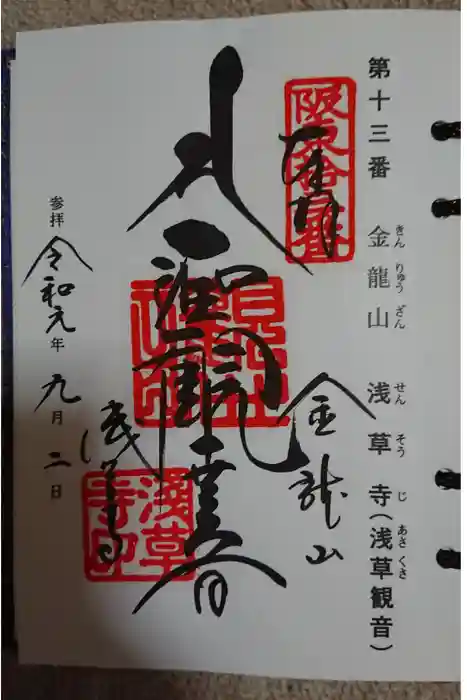 第十三番 金龍山 浅草寺(浅草観音)
きんりゅうざん せんそうじ あさくさ
奉拝
金龍山
浅草寺
淺草
寺印
参拝 令和元年 九月二日